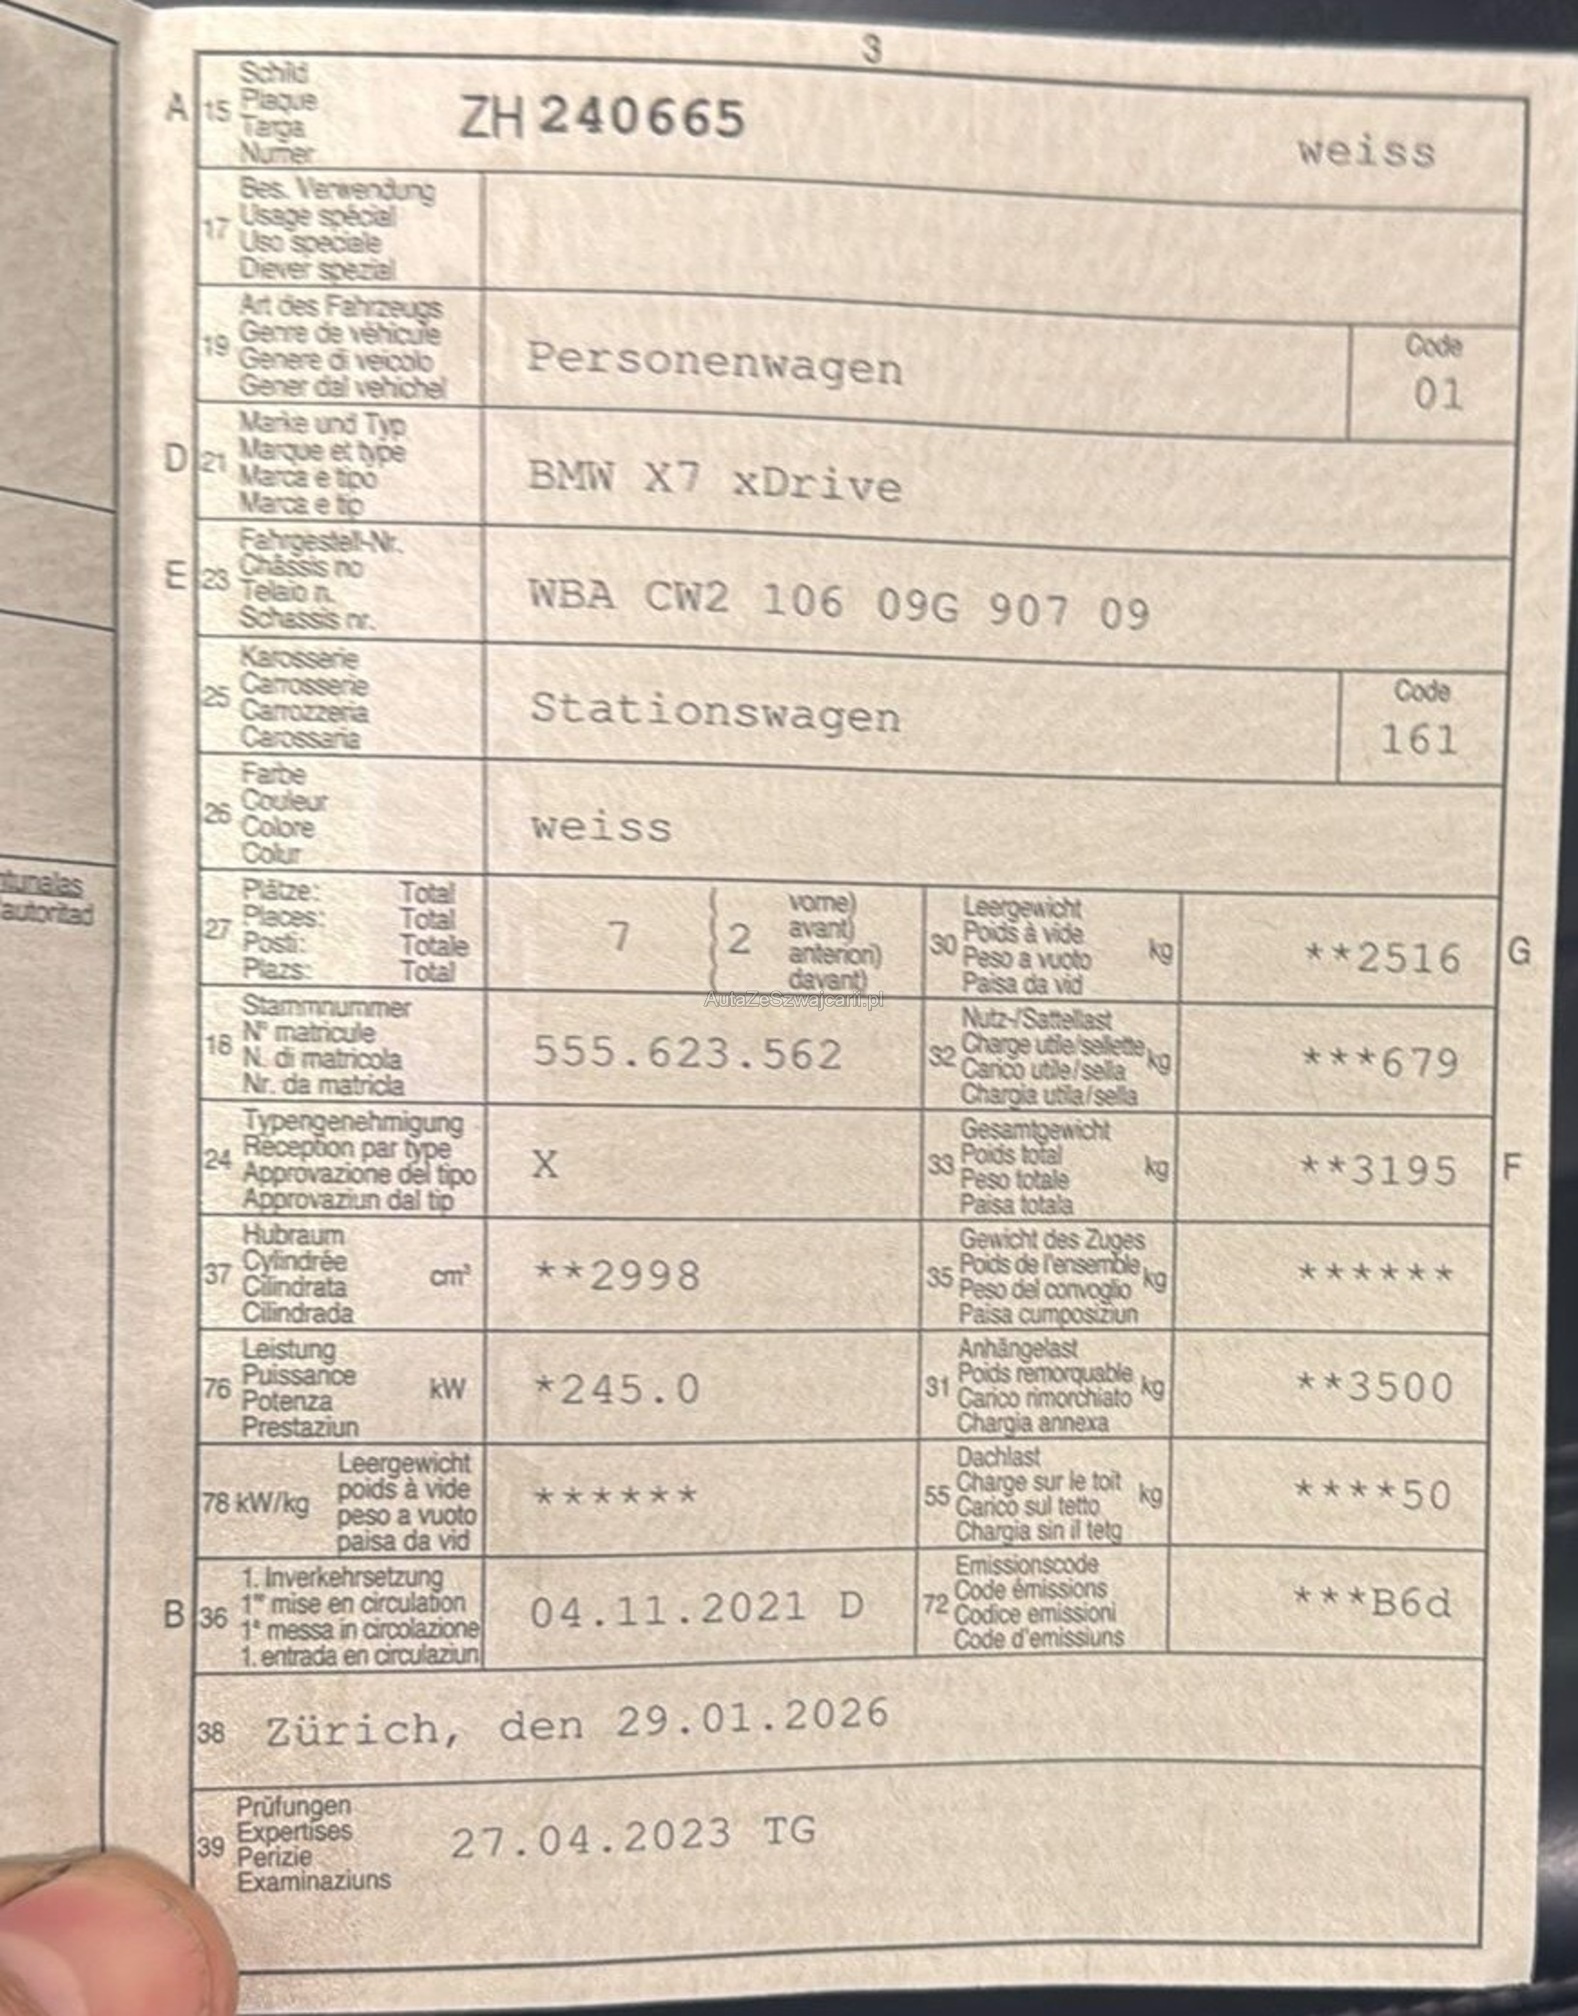 3
A 15 Schild
Plaque
Targa
Numer
ZH 240665
weiss
17 Bes. Verwendung
Usage spécial
Uso speciale
Diever spezial
19 Art des Fahrzeugs
Genre de véhicule
Genere di veicolo
Gener dal vehichel
Personenwagen
Code
01
D 21 Marke und Typ
Marque et type
Marca e tipo
Marca e tip
BMW X7 xDrive
E 23 Fahrgestell-Nr.
Châssis no
Telaio n.
Schassis nr.
WBA CW2 106 09G 907 09
25 Karosserie
Carrosserie
Carrozzeria
Carossaria
Stationswagen
Code
161
26 Farbe
Couleur
Colore
Colur
weiss
27 Plätze: Total
Places: Total
Posti: Totale
Plazs: Total
7 2
vorne)
avant)
anteriori)
davant)
30 Leergewicht
Poids à vide
Peso a vuoto
Paisa da vid
kg
**2516 G
18 Stammnummer
N° matricule
N. di matricola
Nr. da matricla
555.623.562
32 Nutz-/Sattellast
Charge utile/sellette
Carico utile/sella
Chargia utila/sella
kg
***679
24 Typengenehmigung
Réception par type
Approvazione del tipo
Approvaziun dal tip
X
33 Gesamtgewicht
Poids total
Peso totale
Paisa totala
kg
**3195 F
37 Hubraum
Cylindrée
Cilindrata
Cilindrada
cm³
**2998
35 Gewicht des Zuges
Poids de l'ensemble
Peso del convoglio
Paisa cumposiziun
kg
******
76 Leistung
Puissance
Potenza
Prestaziun
kW
*245.0
31 Anhängelast
Poids remorquable
Carico rimorchiato
Chargia annexa
kg
**3500
78 kW/kg
Leergewicht
poids à vide
peso a vuoto
paisa da vid
******
55 Dachlast
Charge sur le toit
Carico sul tetto
Chargia sin il tetg
kg
****50
B 36 1. Inverkehrsetzung
1re mise en circulation
1a messa in circolazione
1. entrada en circulaziun
04.11.2021 D
72 Emissionscode
Code émissions
Codice emissioni
Code d'emissiuns
***B6d
38 Zürich, den 29.01.2026
39 Prüfungen
Expertises
Perizie
Examinaziuns
27.04.2023 TG
autoritad
AutaZeSzwajcarii.pl